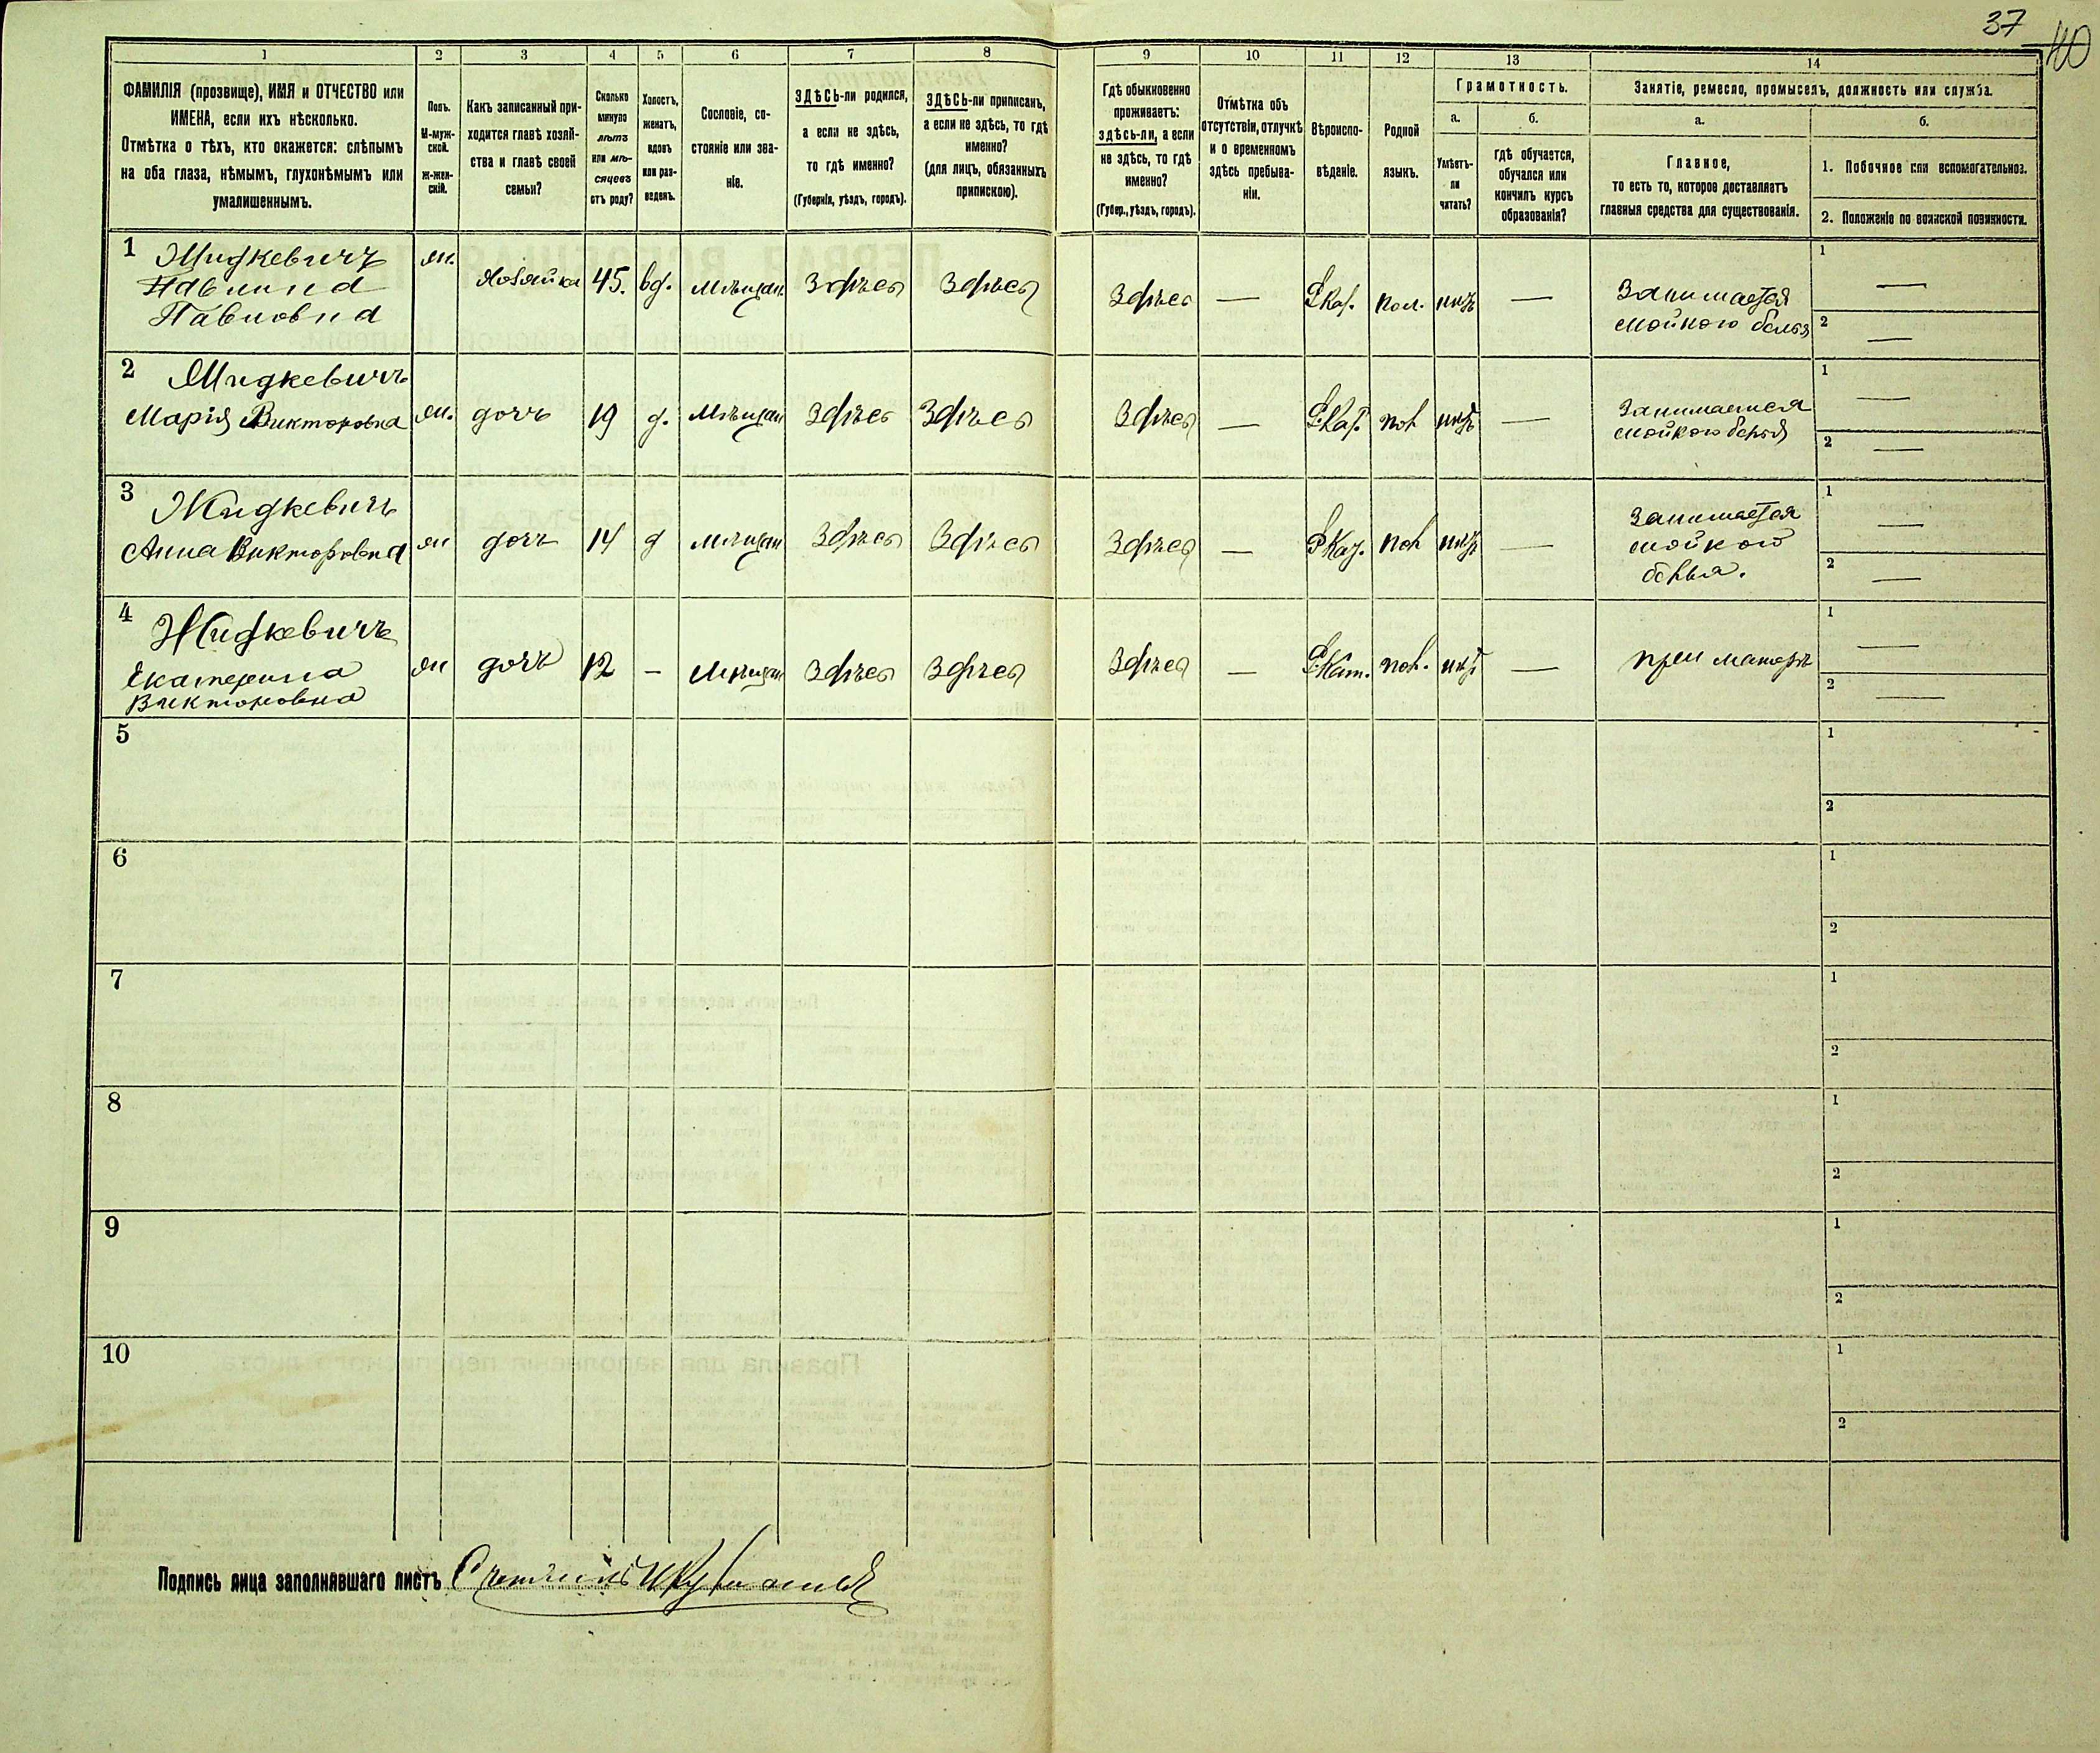 37
40
1 2 3 4 5 6 7 8 9 10 11 12 13 14
ФАМИЛІЯ (прозвище), ИМЯ и ОТЧЕСТВО или
ИМЕНА, если ихъ нѣсколько.
Отмѣтка о тѣхъ, кто окажется: слѣпымъ
на оба глаза, нѣмымъ, глухонѣмымъ или
умалишеннымъ.
Полъ.
М-муж-
ской.
Ж-жен-
скій.
Какъ записанный при-
ходится главѣ хозяй-
ства и главѣ своей
семьи?
Сколько
минуло
лѣтъ
или мѣ-
сяцевъ
отъ роду?
Холостъ,
женатъ,
вдовъ
или раз-
веденъ.
Сословіе, со-
стояніе или зва-
ніе.
ЗДѢСЬ-ли родился,
а если не здѣсь,
то гдѣ именно?
(Губернія, уѣздъ, городъ).
ЗДѢСЬ-ли приписанъ,
а если не здѣсь, то гдѣ
именно?
(для лицъ, обязанныхъ
припискою).
Гдѣ обыкновенно
проживаетъ:
здѣсь-ли, а если
не здѣсь, то гдѣ
именно?
(Губер., уѣздъ, городъ).
Отмѣтка объ
отсутствіи, отлучкѣ
и о временномъ
здѣсь пребыва-
ніи.
Вѣроиспо-
вѣданіе.
Родной
языкъ.
Грамотность.
а.
Умѣетъ-
ли
читать?
б.
Гдѣ обучается,
обучался или
кончилъ курсъ
образованія?
Занятіе, ремесло, промыселъ, должность или служба.
а.
Главное,
то есть то, которое доставляетъ
главныя средства для существованія.
б.
1. Побочное или вспомогательное.
2. Положеніе по воинской повинности.
1 Жидкевичъ
Павлина
Павловна
ж. Хозяйка 45. вд. мѣщан. Здѣсь Здѣсь Здѣсь — Р.Каѳ. пол. нѣтъ —
Занимается
мойкою белья
1 —
2 —
2 Жидкевичъ
Марія Викторовна
ж. дочь 19 д. мѣщан Здѣсь Здѣсь Здѣсь — Р.Каѳ. пол нѣтъ —
Занимается
мойкою белья
1 —
2 —
3 Жидкевичъ
Анна Викторовна
ж дочь 14 д мѣщан Здѣсь Здѣсь Здѣсь — Р.Каѳ. пол нѣтъ —
Занимается
мойкой
белья.
1 —
2 —
4 Жидкевичъ
Екатерина
Викторовна
ж дочь 12 — мѣщан Здѣсь Здѣсь Здѣсь — Р.Кат. пол. нѣтъ —
при матери
1 —
2 —
5
1
2
6
1
2
7
1
2
8
1
2
9
1
2
10
1
2
Подпись лица заполнявшаго листъ Счетчикъ